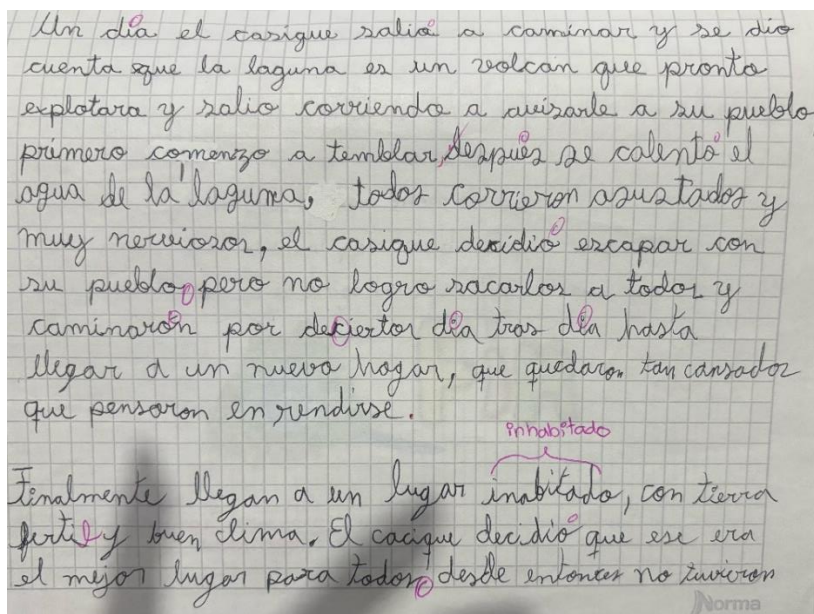 Un día el casigue salió a caminar y se dio
cuenta que la laguna es un volcan que pronto
explotara y salio corriendo a avisarle a su pueblo
primero comenzo a temblar, después se calentó el
agua de la laguna, todos corrieron asustados y
muy nerviosos, el casigue decidió escapar con
su pueblo, pero no logro sacarlos a todos y
caminarón por deciertos día tras día hasta
llegar a un nuevo hogar, que quedaron tan cansados
que pensaron en rendirse.
inhabitado
Finalmente llegan a un lugar inabitado, con tierra
fertil y buen clima. El cacique decidió que ese era
el mejor lugar para todos, desde entonces no tuvieron
Norma